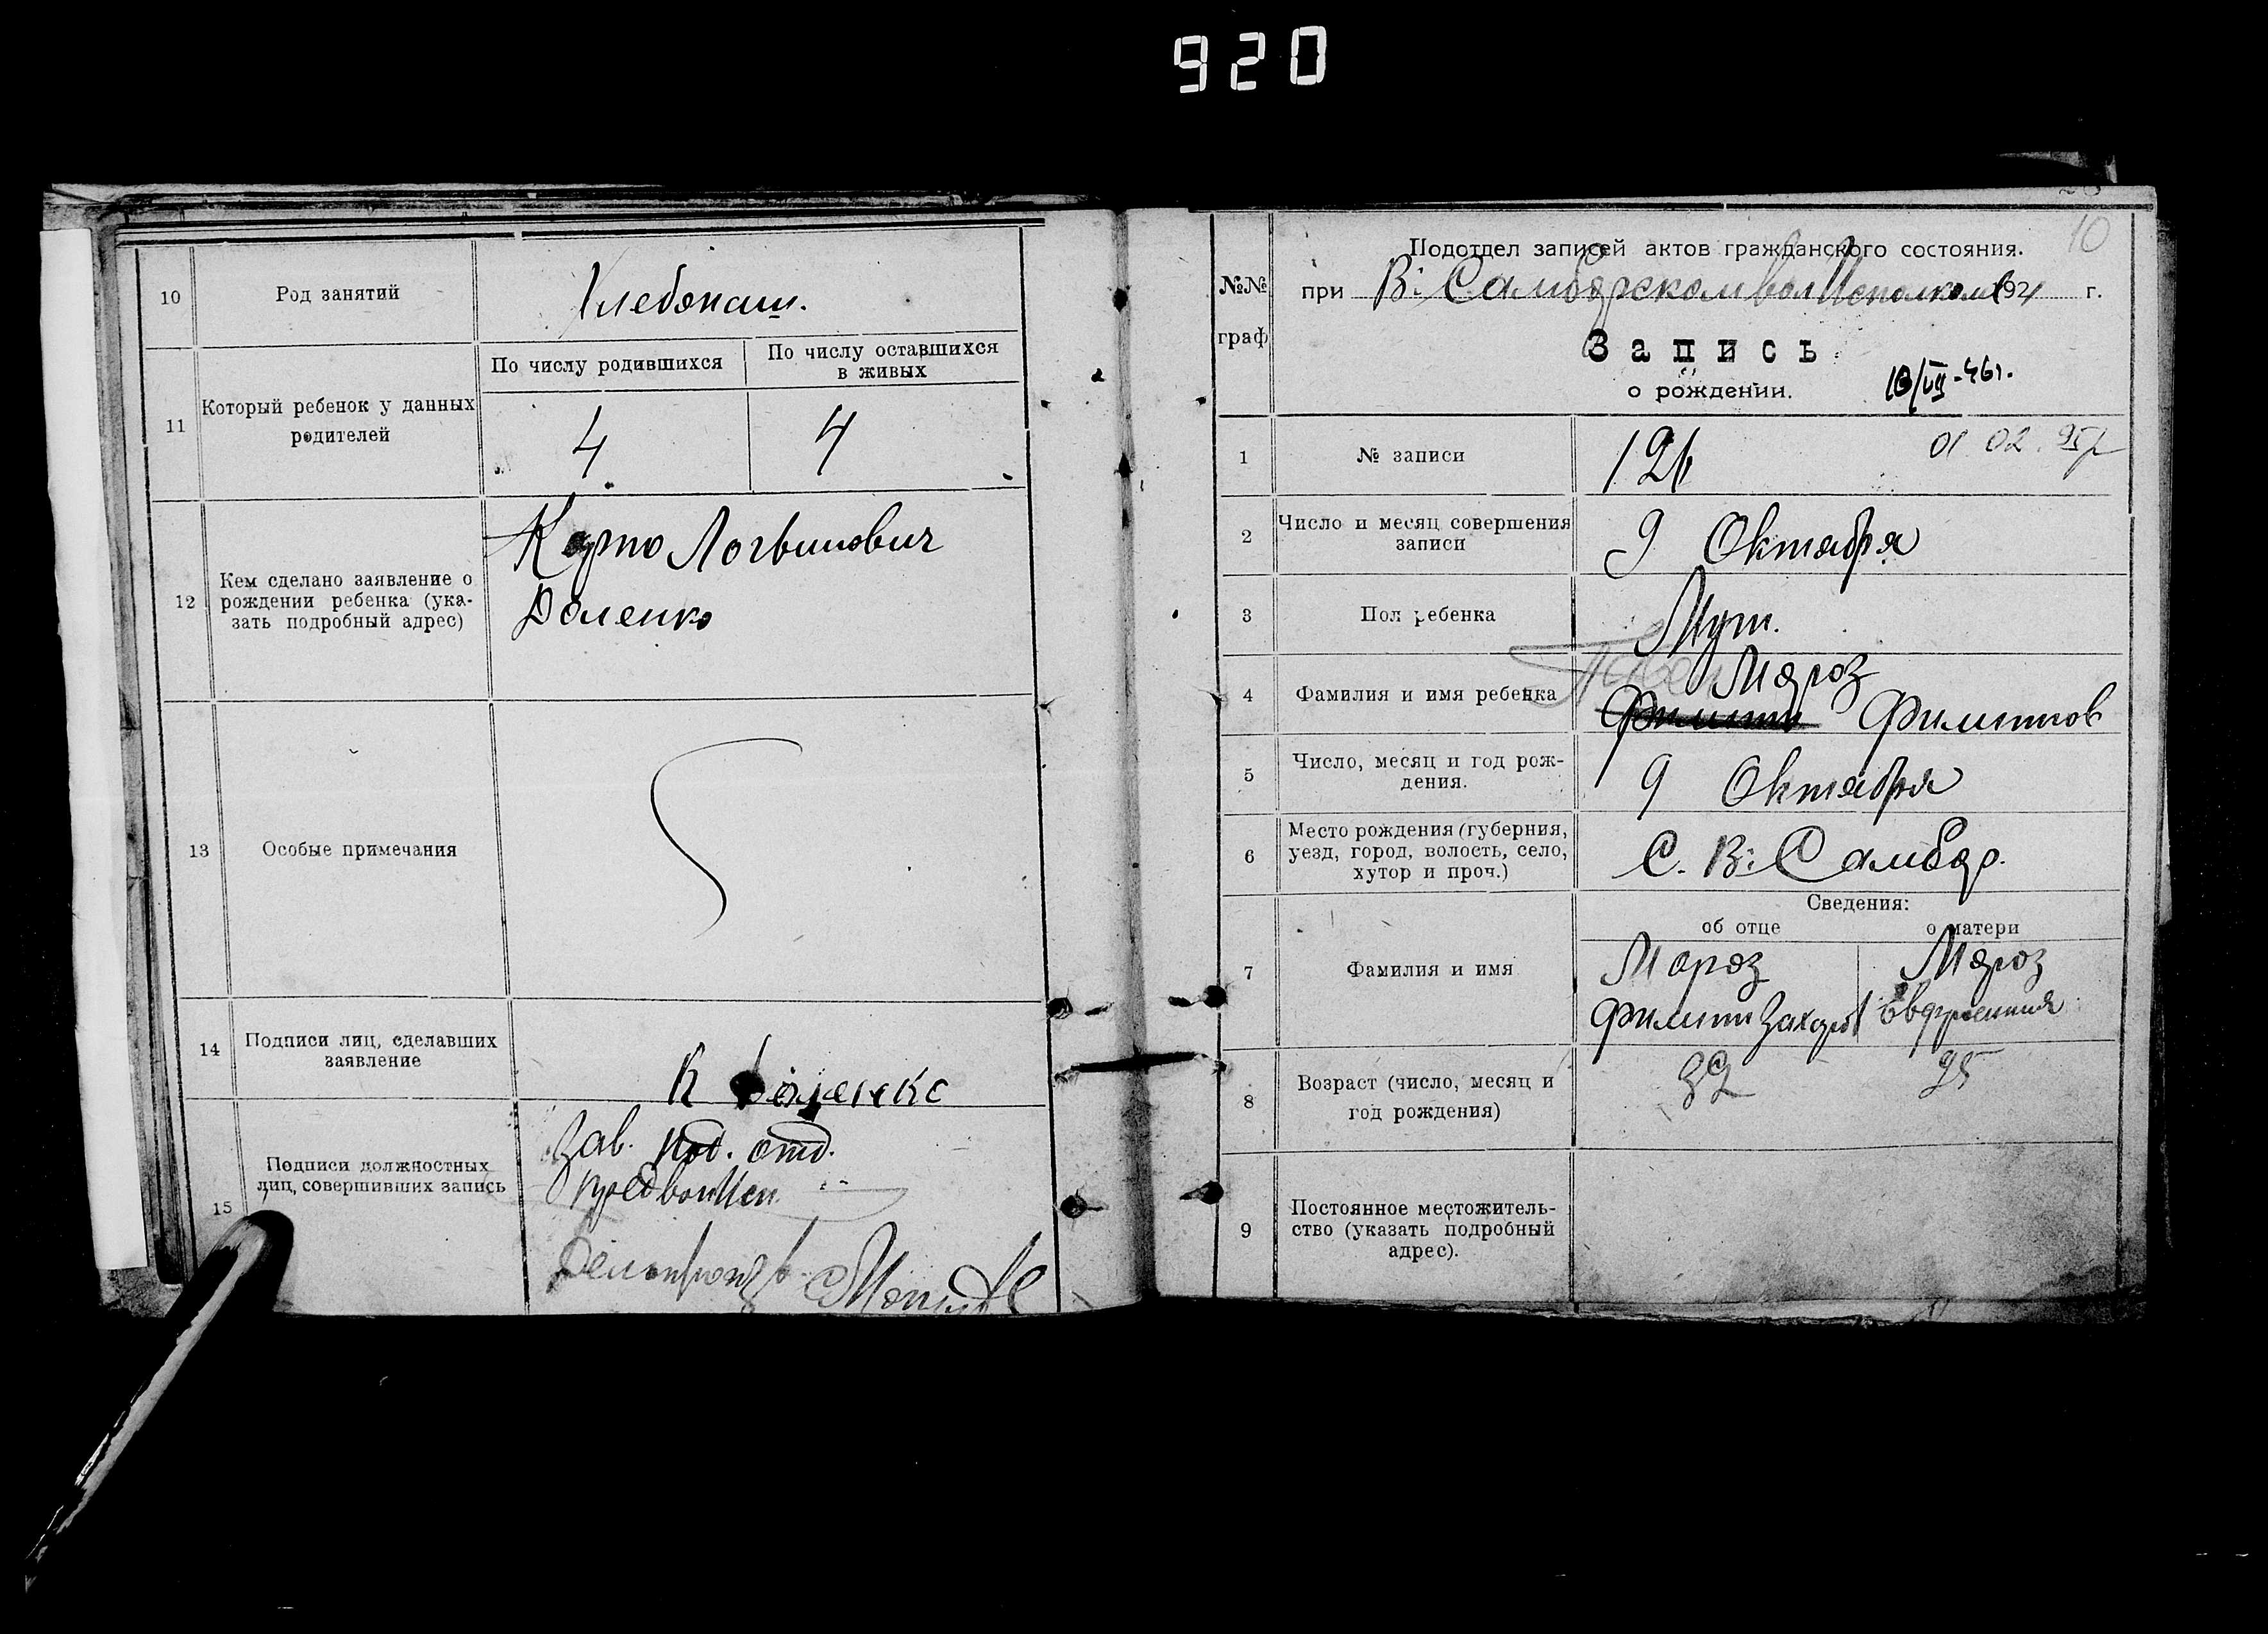 920
10
Род занятий
Хлебопаш.
11
Который ребенок у данных
родителей
По числу родившихся
По числу оставшихся
в живых
4
4
12
Кем сделано заявление о
рождении ребенка (ука-
зать подробный адрес)
Логвинович
Доленко
13
Особые примечания
14
Подписи лиц, сделавших
заявление
К Доленко
15
Подписи должностных
лиц, совершивших запись
Зав. отд.
10
№№
граф
Подотдел записей актов гражданского состояния.
при В: Самборском волИсполкоме 192 г.
Запись
о рождении.
10/VII-46г.
1
№ записи
126
01 02.
2
Число и месяц совершения
записи
9 Октября
3
Пол ребенка
Муж.
4
Фамилия и имя ребенка
Павел Мороз
Филипп Филиппов
5
Число, месяц и год рож-
дения.
9 Октября
6
Место рождения (губерния,
уезд, город, волость, село,
хутор и проч.)
С. В: Самбор.
Сведения:
об отце
о матери
7
Фамилия и имя
Мороз
Филипп Захаров
Мороз
8
Возраст (число, месяц и
год рождения)
32
25
9
Постоянное местожитель-
ство (указать подробный
адрес).